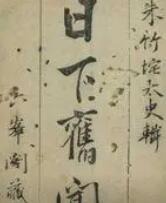 朱竹垞太史輯
日下舊聞
六峯閣藏